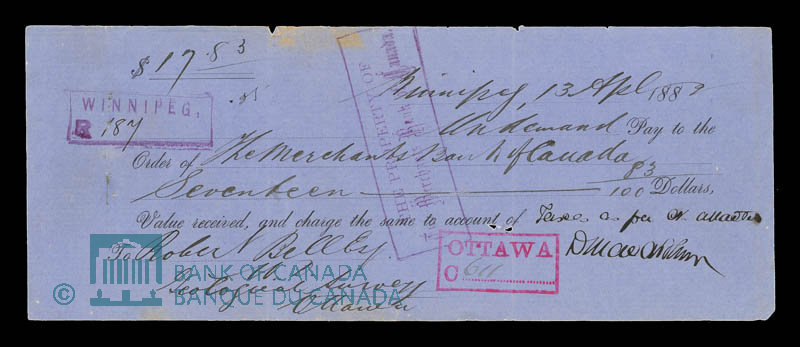 $ 17.83
WINNIPEG,
R 187
THE PROPERTY OF
Merchants Bank of Canada,
Winnipeg, 13 Apl 188
On demand Pay to the
Order of The Merchants Bank of Canada
Seventeen 83/100 Dollars,
Value received, and charge the same to account of as per
To Robert Bell Esq
OTTAWA
C 611
Geological Survey
Ottawa
© BANK OF CANADA
BANQUE DU CANADA